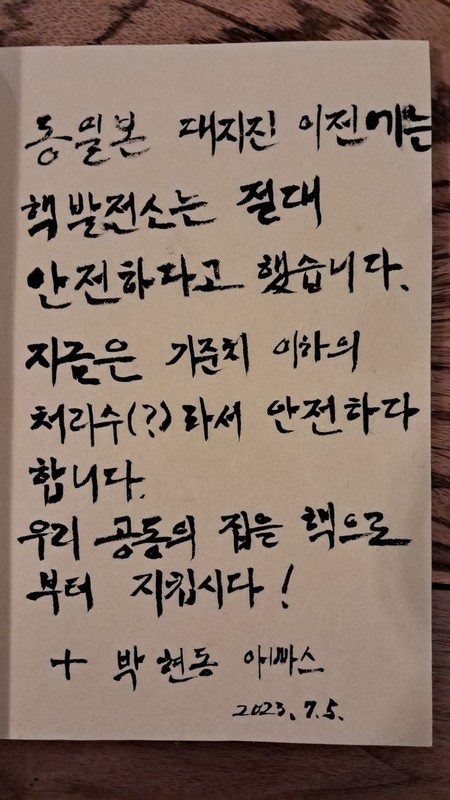 동일본 대지진 이전에는
핵발전소는 절대
안전하다고 했습니다.
지금은 기준치 이하의
처리수(?)라서 안전하다
합니다.
우리 공동의 집을 핵으로
부터 지킵시다!
+ 박현동 아빠스
2023. 7. 5.